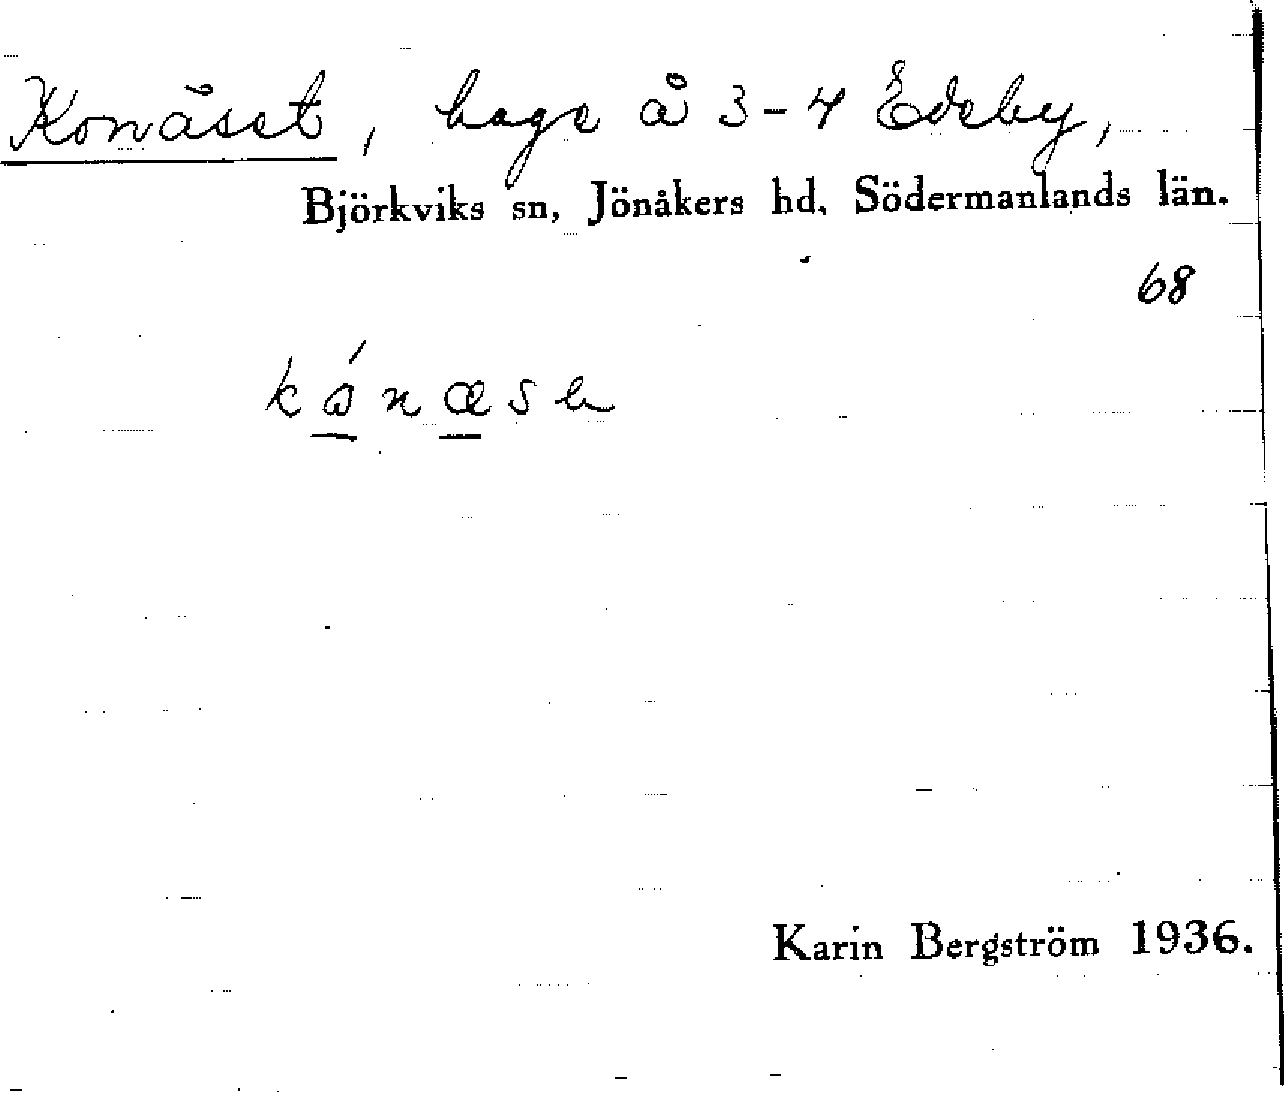 Konässet, hage å 3-4 Edeby,
Björkviks sn, Jönåkers hd, Södermanlands län.
68
Karin Bergström 1936.